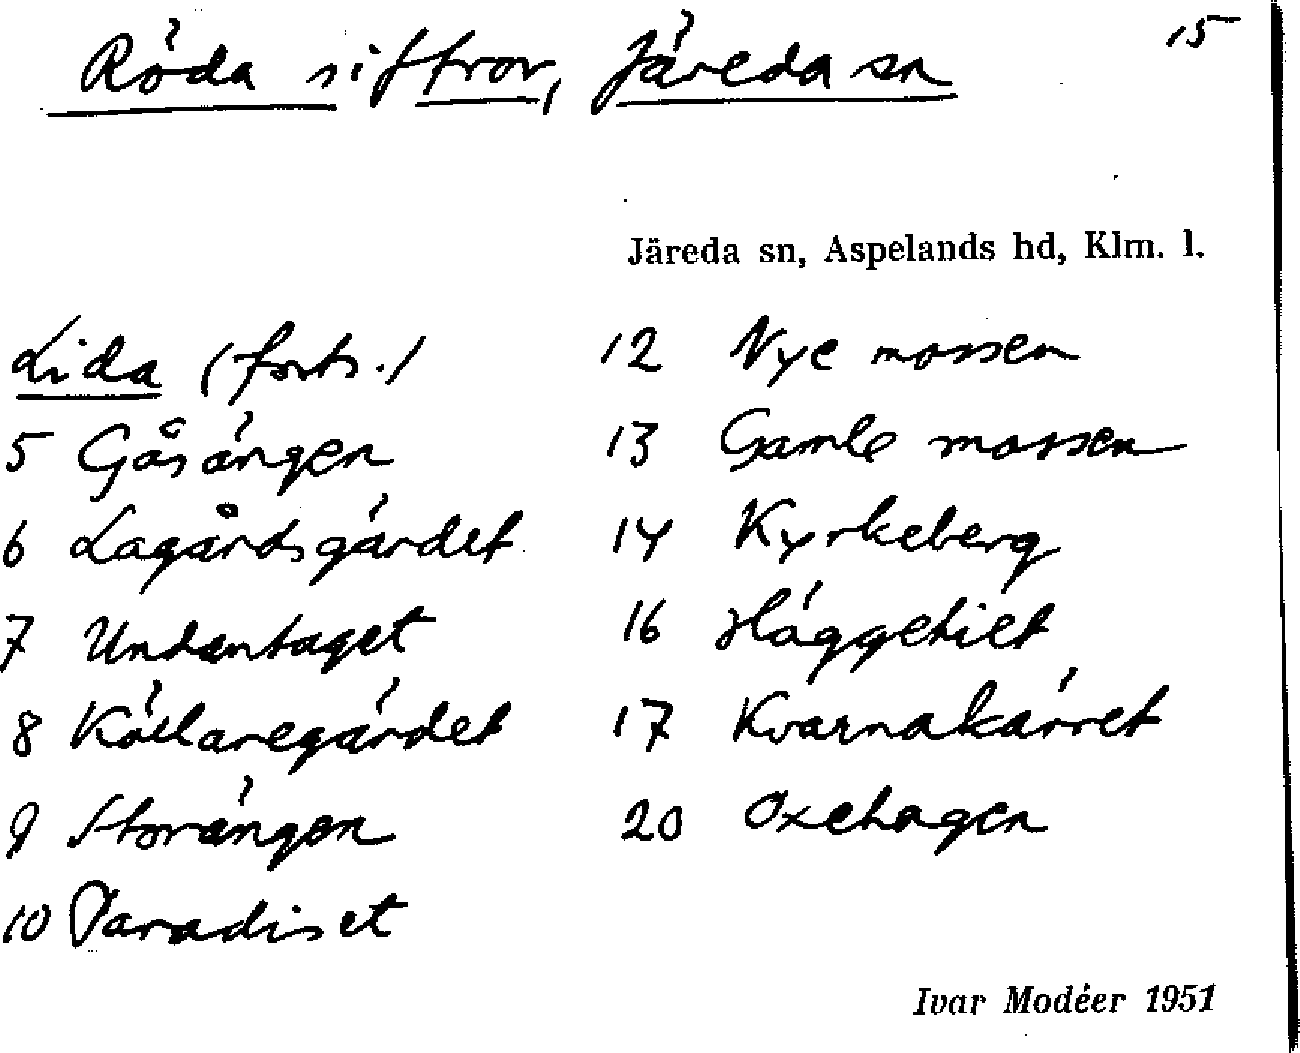 15
Röda siffror, Järeda sn
Järeda sn, Aspelands hd, Klm. l.
Lida (forts.)
5 Gåsängen
6 Lagårdsgärdet
7 Undantaget
8 Källaregärdet
9 Storängen
10 Paradiset
12 Nye mossen
13 Gamle mossen
14 Kyrkeberg
16 Häggetiet
17 Kvarnakärret
20 Oxehagen
Ivar Modéer 1951